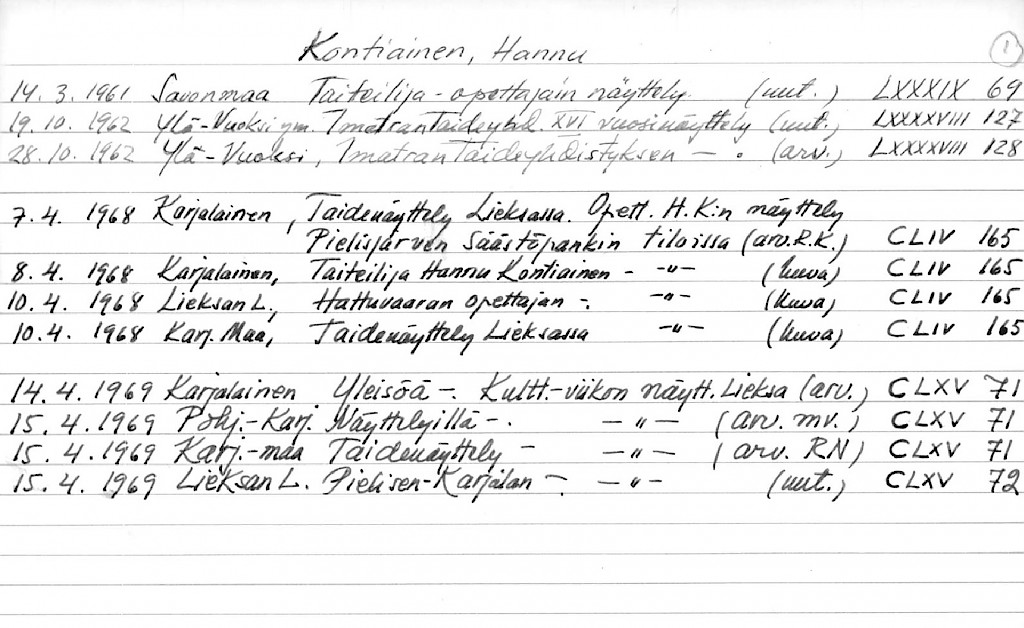 Kontiainen, Hannu 1
14. 3. 1961 Savonmaa Taiteilija-opettajain näyttely. (uut.) LXXXIX 69
19. 10. 1962 Ylä-Vuoksi ym. Imatran Taideyhd. XVI vuosinäyttely (uut.) LXXXXVIII 127
28. 10. 1962 Ylä-Vuoksi, Imatran Taideyhdistyksen - . (arv.) LXXXXVIII 128
7. 4. 1968 Karjalainen, Taidenäyttely Lieksassa. Opett. H.K:n näyttely
Pielisjärven Säästöpankin tiloissa (arv. R.K.) CLIV 165
8. 4. 1968 Karjalainen, Taiteilija Hannu Kontiainen - -"- (kuva) CLIV 165
10. 4. 1968 Lieksan L., Hattuvaaran opettajan -. -"- (kuva) CLIV 165
10. 4. 1968 Karj. Maa, Taidenäyttely Lieksassa -"- (kuva) CLIV 165
14. 4. 1969 Karjalainen Yleisöä -. Kultt.-viikon näytt. Lieksa (arv.) CLXV 71
15. 4. 1969 Pohj.-Karj. Näyttelyillä -. -"- (arv. mv.) CLXV 71
15. 4. 1969 Karj.-maa Taidenäyttely - -"- (arv. RN) CLXV 71
15. 4. 1969 Lieksan L. Pielisen-Karjalan -. -"- (uut.) CLXV 72